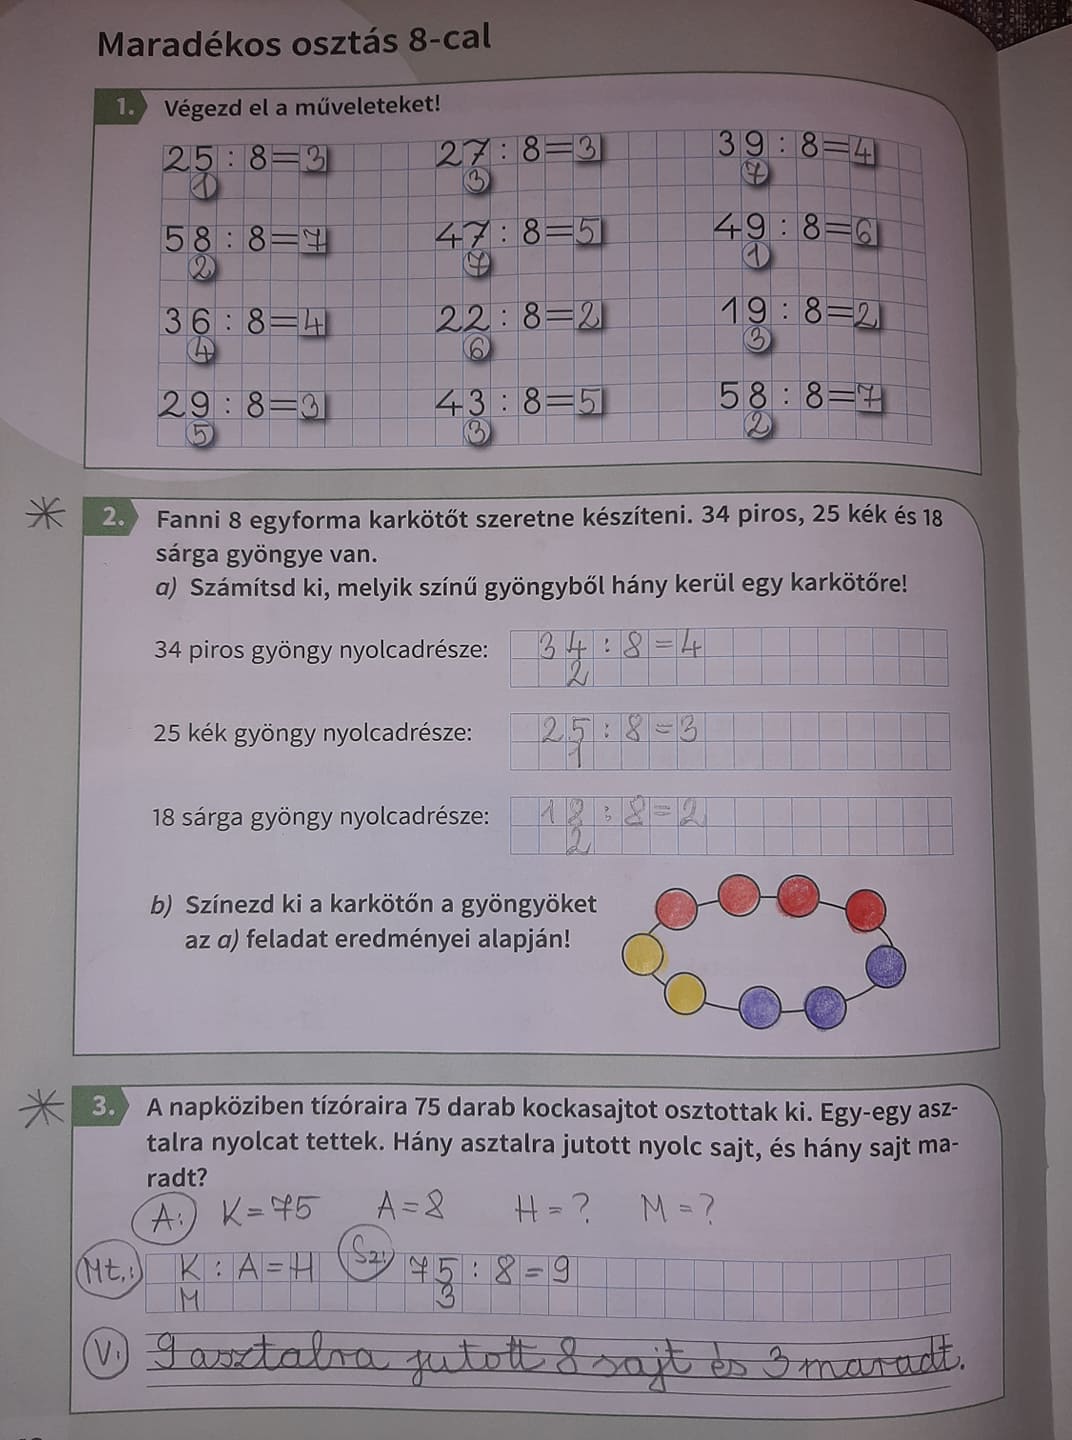 Maradékos osztás 8-cal
1. Végezd el a műveleteket!
25 : 8 = 3 27 : 8 = 3 39 : 8 = 4
1 3 7
58 : 8 = 7 47 : 8 = 5 49 : 8 = 6
2 7 1
36 : 8 = 4 22 : 8 = 2 19 : 8 = 2
4 6 3
29 : 8 = 3 43 : 8 = 5 58 : 8 = 7
5 3 2
2. Fanni 8 egyforma karkötőt szeretne készíteni. 34 piros, 25 kék és 18
sárga gyöngye van.
a) Számítsd ki, melyik színű gyöngyből hány kerül egy karkötőre!
34 piros gyöngy nyolcadrésze: 34 : 8 = 4
2
25 kék gyöngy nyolcadrésze: 25 : 8 = 3
1
18 sárga gyöngy nyolcadrésze: 18 : 8 = 2
2
b) Színezd ki a karkötőn a gyöngyöket
az a) feladat eredményei alapján!
3. A napköziben tízóraira 75 darab kockasajtot osztottak ki. Egy-egy asz-
talra nyolcat tettek. Hány asztalra jutott nyolc sajt, és hány sajt ma-
radt?
A: K = 75 A = 8 H = ? M = ?
Mt.: K : A = H Sz: 75 : 8 = 9
M 3
V: 9 asztalra jutott 8 sajt és 3 maradt.